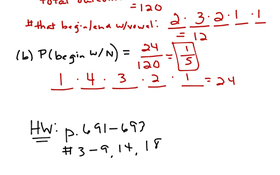 total outcomes
=120
#that begin/end w/vowel: 2 · 3 · 2 · 1 · 1
= 12
(b) P(begin w/N) = 24/120 = 1/5
1 · 4 · 3 · 2 · 1 = 24
HW: p. 691-693
#3-9, 14, 18